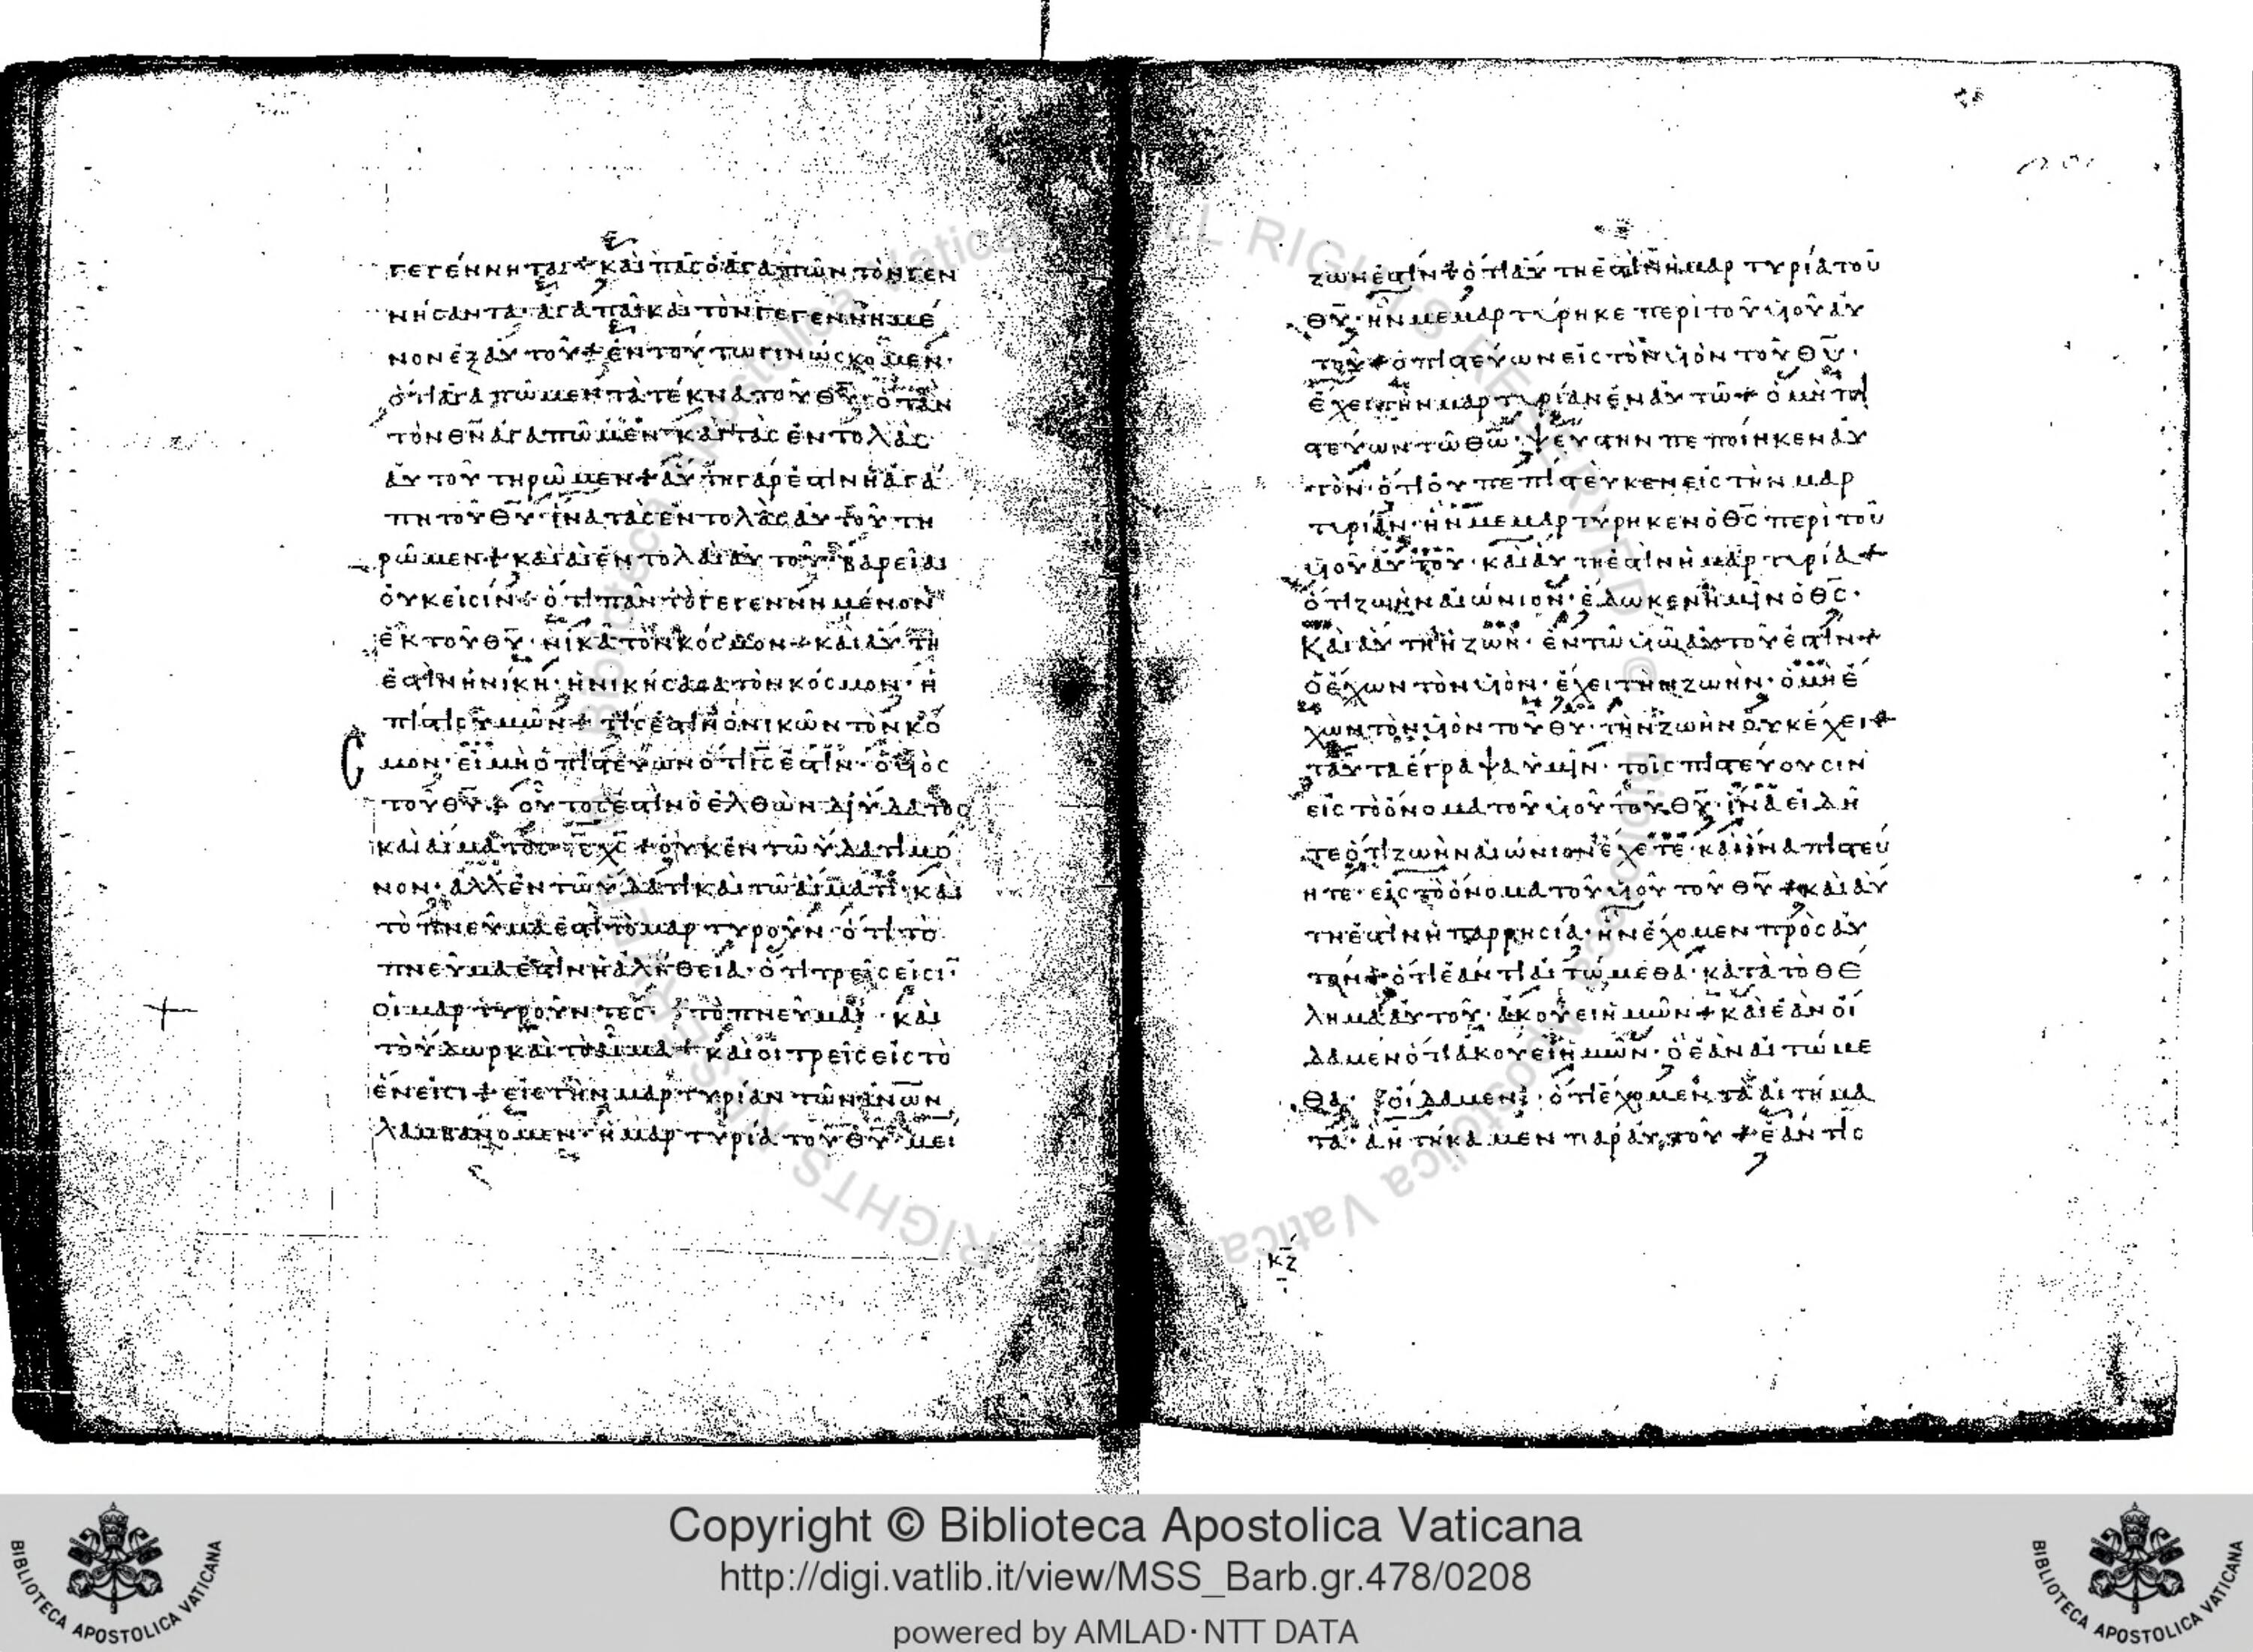 γεγέννηται + καὶ πᾶς ὁ ἀγαπῶν τὸν γεν
νήσαντα· ἀγαπᾶι καὶ τὸν γεγεννημέ
νον ἐξ αὐτοῦ + ἐν τούτω γινώσκομεν·
ὅτι ἀγαπῶμεν τὰ τέκνα τοῦ θ̅υ̅· ὅταν
τὸν θ̅ν̅ ἀγαπῶμεν· καὶ τὰς ἐντολὰς
αὐτοῦ τηρῶμεν + αὕτη γάρ ἐστὶν ἡ ἀγά
πη τοῦ θ̅υ̅· ἵνα τὰς ἐντολὰς αὐτοῦ τη
ρῶμεν + καὶ αἱ ἐντολαὶ αὐτοῦ βαρεῖαι
οὐκ εἰσίν + ὅτι πᾶν τὸ γεγεννημένον
ἐκ τοῦ θ̅υ̅· νικᾶ τὸν κόσμον + καὶ αὕτη
ἐστὶν ἡ νίκη· ἡ νικήσασα τὸν κόσμον· ἡ
πίστις ὑμῶν + τίς ἐστὶν ὁ νικῶν τὸν κό
μον· εἰ μὴ ὁ πιστεύων ὅτι ι̅ς̅ ἐστὶν· ὁ υἱὸς
τοῦ θ̅υ̅ + οὗτος ἐστὶν ὁ ἐλθὼν δι' ὕδατος
καὶ αἵματος ι̅ς̅ χ̅ς̅ + οὐκ ἐν τῶ ὕδατι μό
νον· ἀλλ' ἐν τῶ ὕδατι καὶ τῶ αἵματι· καὶ
τὸ πνεῦμα ἐστὶ τὸ μαρτυροῦν· ὅτι τὸ
πνεῦμα ἐστὶν ἡ ἀλήθεια· ὅτι τρεῖς εἰσι̅
οἱ μαρτυροῦντες· τὸ πνεῦμα· καὶ
τὸ ὕδωρ καὶ τὸ αἷμα + καὶ οἱ τρεῖς εἰς τὸ
ἕν εἰσι + εἰ τὴν μαρτυρίαν τῶν α̅ν̅ω̅ν̅
λαμβάνομεν· ἡ μαρτυρία τοῦ θ̅υ̅ μεί
ζων ἐστὶν + ὅτι αὕτη ἐστὶν ἡ μαρτυρία τοῦ
θ̅υ̅· ἣν μεμαρτύρηκε περὶ τοῦ υἱοῦ αὐ
τοῦ + ὁ πιστεύων εἰς τὸν υἱὸν τοῦ θ̅υ̅·
ἔχει τὴν μαρτυρίαν ἐν αὐτῶ + ὁ μὴ πι
στεύων τῶ θ̅ω̅· ψεύστην πεποίηκεν αὐ
τὸν· ὅτι οὐ πεπίστευκεν εἰς τὴν μαρ
τυρίαν· ἣν μεμαρτύρηκεν ὁ θ̅ς̅ περὶ τοῦ
υἱοῦ αὐτοῦ· καὶ αὕτη ἐστὶν ἡ μαρτυρία +
ὅτι ζωὴν αἰώνιον· ἔδωκεν ἡμῖν ὁ θ̅ς̅·
Καὶ αὕτη ἡ ζωὴ· ἐν τῶ υἱῶ αὐτοῦ ἐστὶν +
ὁ ἔχων τὸν υἱὸν· ἔχει τὴν ζωὴν· ὁ μὴ ἔ
χων τὸν υἱὸν τοῦ θ̅υ̅· τὴν ζωὴν οὐκ ἔχει +
ταῦτα ἔγραψα ὑμῖν· τοῖς πιστεύουσιν
εἰς τὸ ὄνομα τοῦ υἱοῦ τοῦ θ̅υ̅· ἵνα εἰδῆ
τε ὅτι ζωὴν αἰώνιον ἔχετε· καὶ ἵνα πιστεύ
ητε· εἰς τὸ ὄνομα τοῦ υἱοῦ τοῦ θ̅υ̅ + καὶ αὕ
τη ἐστὶν ἡ παρρησία· ἣν ἔχομεν πρὸς αὐ
τὸν + ὅτι ἐάν τι αἰτώμεθα· κατὰ τὸ θέ
λημα αὐτοῦ· ἀκούει ἡμῶν + καὶ ἐὰν οἴ
δαμεν ὅτι ἀκούει ἡμῶν· ὃ ἐὰν αἰτώμε
θα· οἴδαμεν· ὅτι ἔχομεν τὰ αἰτήμα
τα· ἃ ἠτήκαμεν παρ' αὐτοῦ + ἐάν τις
κ̅ζ̅
Copyright © Biblioteca Apostolica Vaticana
http://digi.vatlib.it/view/MSS_Barb.gr.478/0208
powered by AMLAD·NTT DATA
BIBLIOTECA APOSTOLICA VATICANA
BIBLIOTECA APOSTOLICA VATICANA